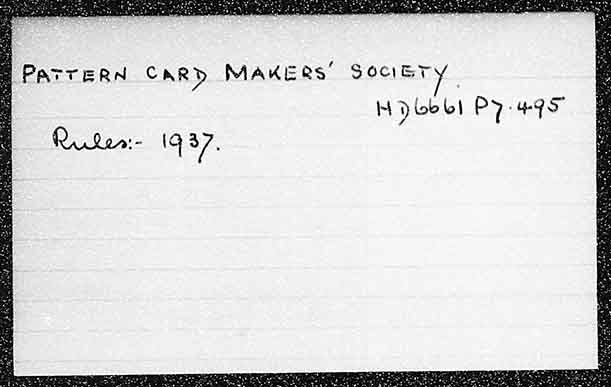 PATTERN CARD MAKERS' SOCIETY.
HD6661 P7.495
Rules:- 1937.